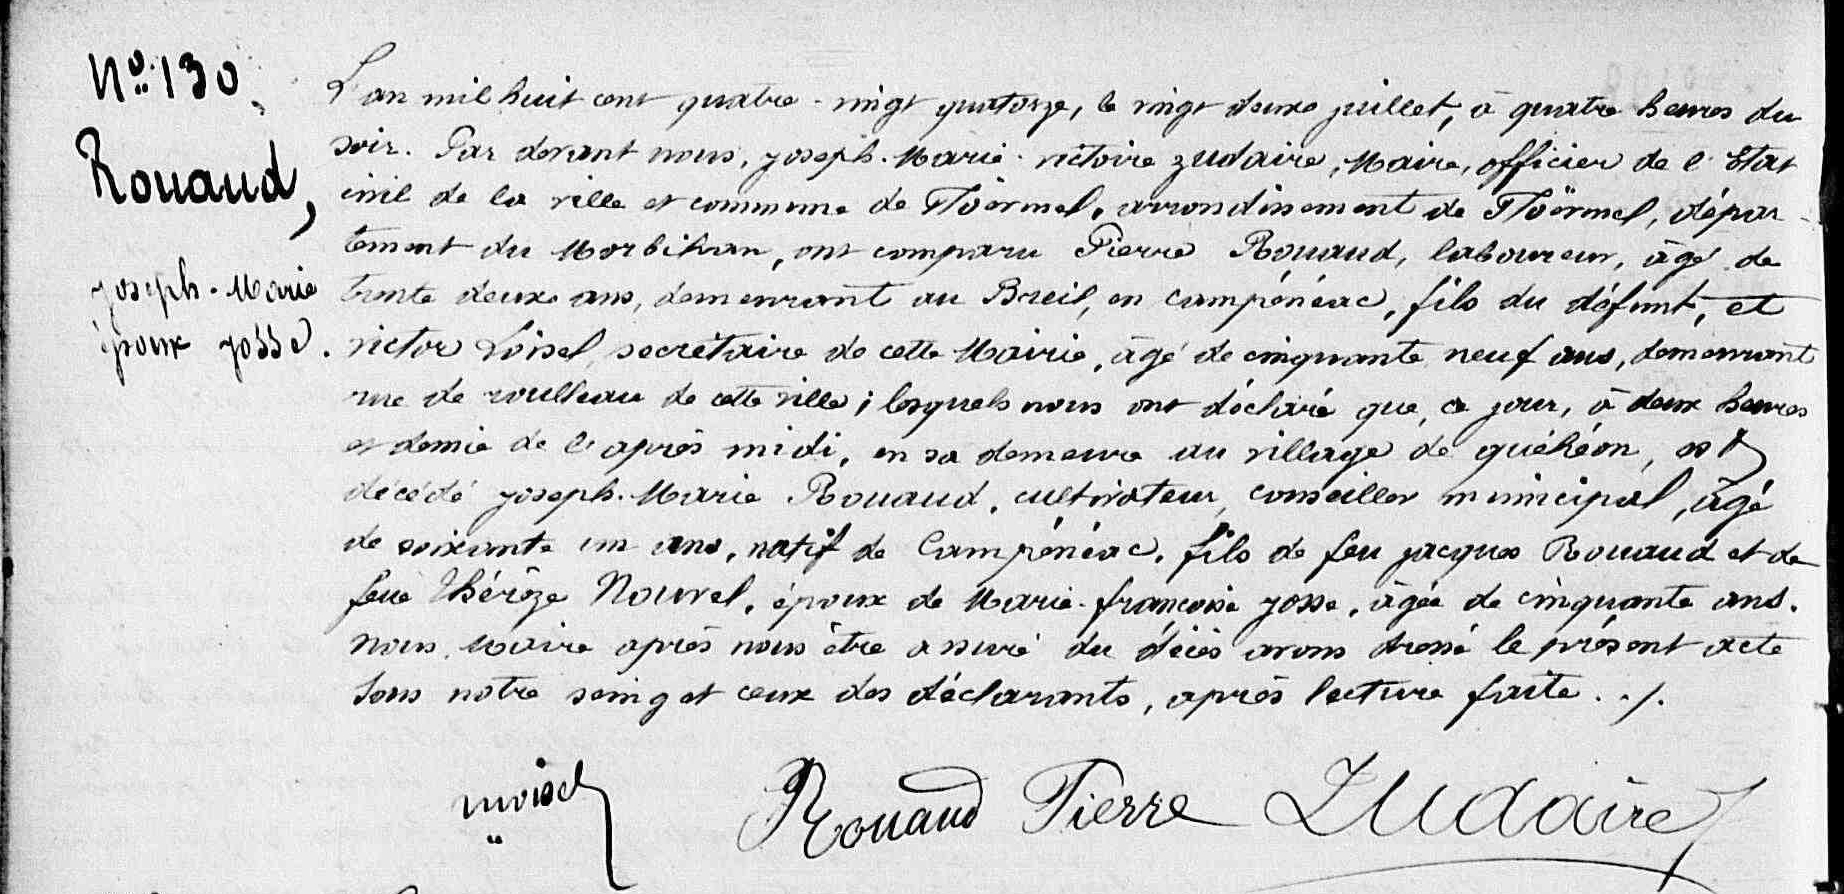 N° 130
Rouaud,
Joseph-Marie
époux Josse.
L'an mil huit cent quatre-vingt quatorze, le vingt deux juillet, à quatre heures du
soir. Par devant nous, Joseph-Marie-Victoire Zudaire, Maire, officier de l'Etat
civil de la ville et commune de Ploërmel, arrondissement de Ploërmel, dépar-
tement du Morbihan, ont comparu Pierre Rouaud, laboureur, âgé de
trente deux ans, demeurant au Breil, en Campénéac, fils du défunt, et
Victor Loisel, secrétaire de cette Mairie, âgé de cinquante neuf ans, demeurant
rue de de cette ville ; lesquels nous ont déclaré que, ce jour, à deux heures
et demie de l'après midi, en sa demeure au village de Quéhéon, est
décédé Joseph-Marie Rouaud, cultivateur, conseiller municipal, âgé
de soixante un ans, natif de Campénéac, fils de feu Jacques Rouaud et de
feue Thérèze Nouvel, époux de Marie-Françoise Josse, âgée de cinquante ans.
Nous, Maire après nous être assuré du décès avons dressé le présent acte
sous notre seing et ceux des déclarants, après lecture faite. ./.
Rouaud Pierre Zudaire